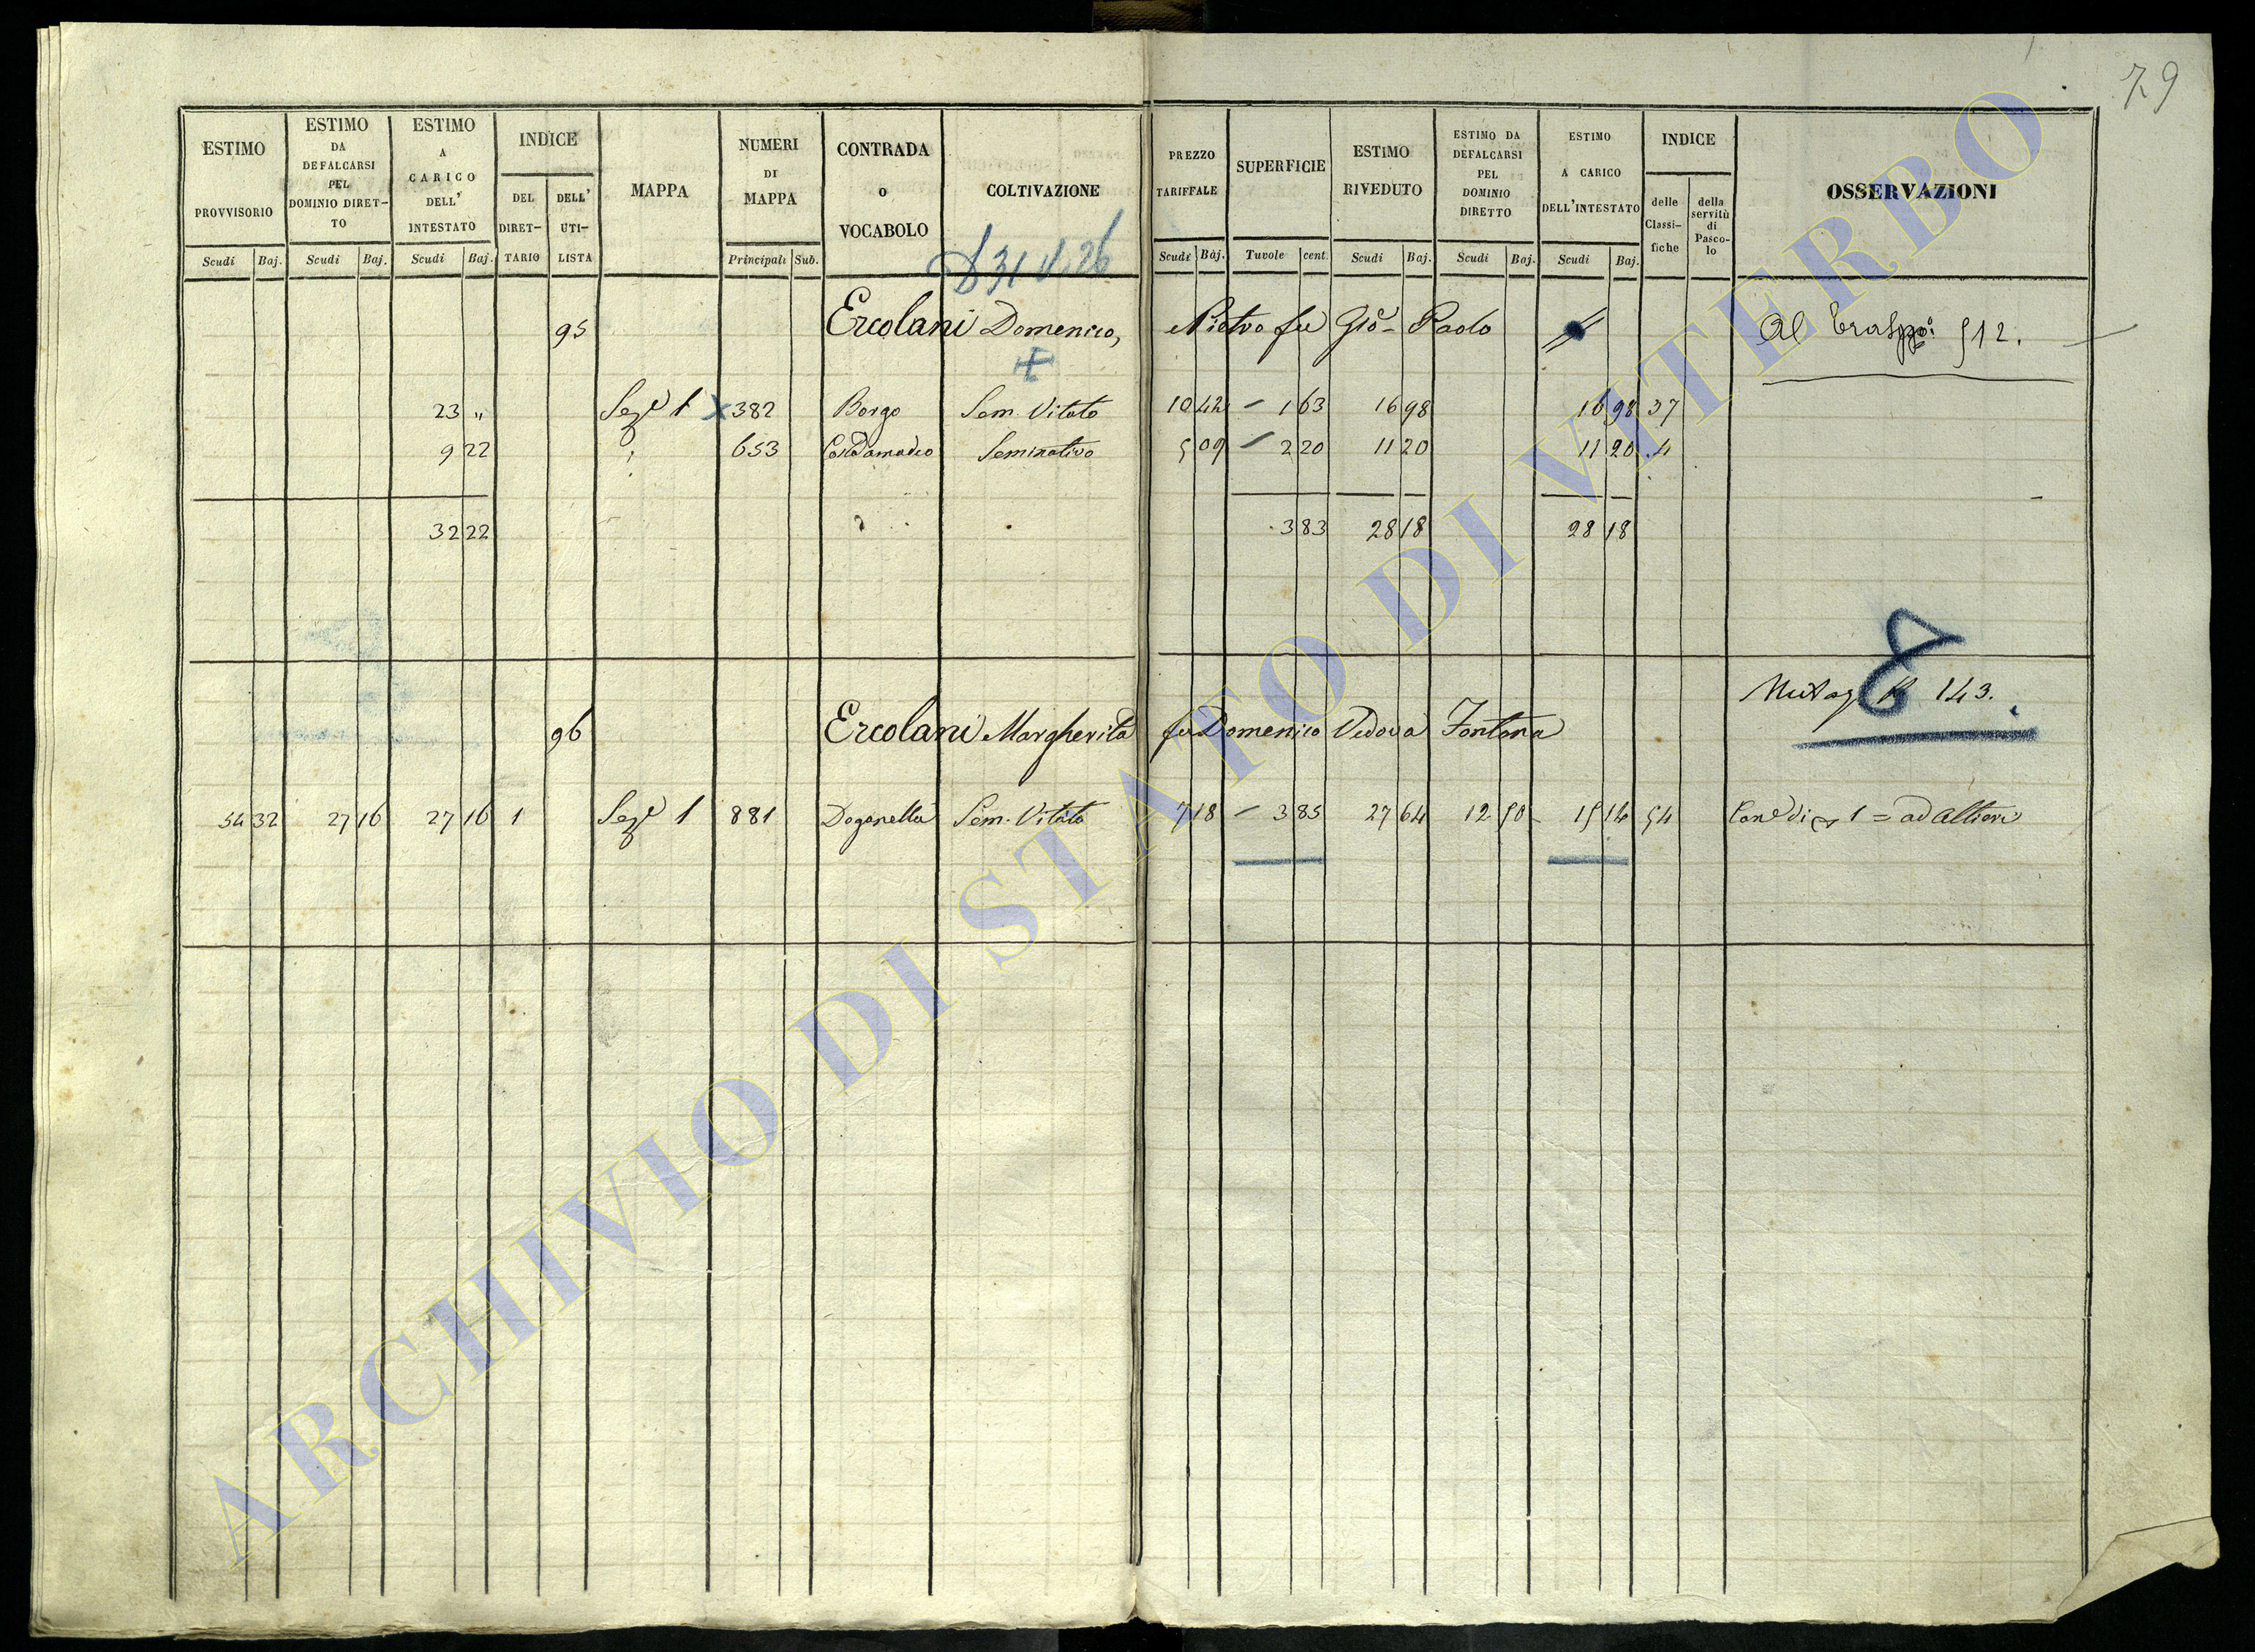 79
ESTIMO PROVVISORIO
ESTIMO DA DEFALCARSI PEL DOMINIO DIRET-TO
ESTIMO A CARICO DELL' INTESTATO
INDICE
DEL DIRET-TARIO
DELL' UTI-LISTA
MAPPA
NUMERI DI MAPPA
CONTRADA o VOCABOLO
COLTIVAZIONE
PREZZO TARIFFALE
SUPERFICIE
ESTIMO RIVEDUTO
ESTIMO DA DEFALCARSI PEL DOMINIO DIRETTO
ESTIMO A CARICO DELL'INTESTATO
INDICE
delle Classi-fiche
della servitù di Pasco-lo
OSSERVAZIONI
Scudi Baj. Scudi Baj. Scudi Baj. Principali Sub. Scudi Baj. Tavole cent. Scudi Baj. Scudi Baj. Scudi Baj.
95 Ercolani Domenico, Pietro fu Gio- Paolo Al 512.
23 „ Seze 1 382 Borgo Sem. Vitato 10 42 - 1 63 16 98 16 98 37
9 22 653 Seminativo 5 09 - 2 20 11 20 11 20 4
32 22 3 83 28 18 28 18
143.
96 Ercolani Margherita fu Domenico Vedova Fontana
54 32 27 16 27 16 1 Seze 1 881 Doganella Sem. Vitato 7 18 - 3 85 27 64 12 50 15 14 54 1 = ad Altieri
ARCHIVIO DI STATO DI VITERBO